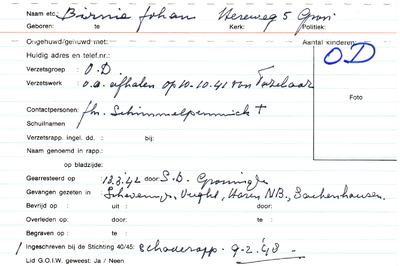 Naam etc. Birnie Johan Hereweg 5 Gron.
Geboren: te Kerk: Politiek:
Ongehuwd/gehuwd met: Aantal kinderen:
Huidig adres en telef.nr.: O D
Verzetsgroep : O.D.
Verzetswerk : o.a. afhalen op 10-10-41 van
Foto
Contactpersonen: fhr. Schimmelpenninck +
Schuilnamen
Verzetsrapp. ingel. dd. : bij:
Naam genoemd in rapp.:
op bladzijde:
Gearresteerd op : 13.3.42 door: S.D. Groningen
Gevangen gezeten in: Scheveningen, Vught, Haren NB., Sachsenhausen.
Bevrijd op : uit : door:
Overleden op: door: te :
Begraven op : te :
Ingeschreven bij de Stichting 40/45: Schaderapp. 9-2-'48
Lid G.O.I.W. geweest: Ja / Neen